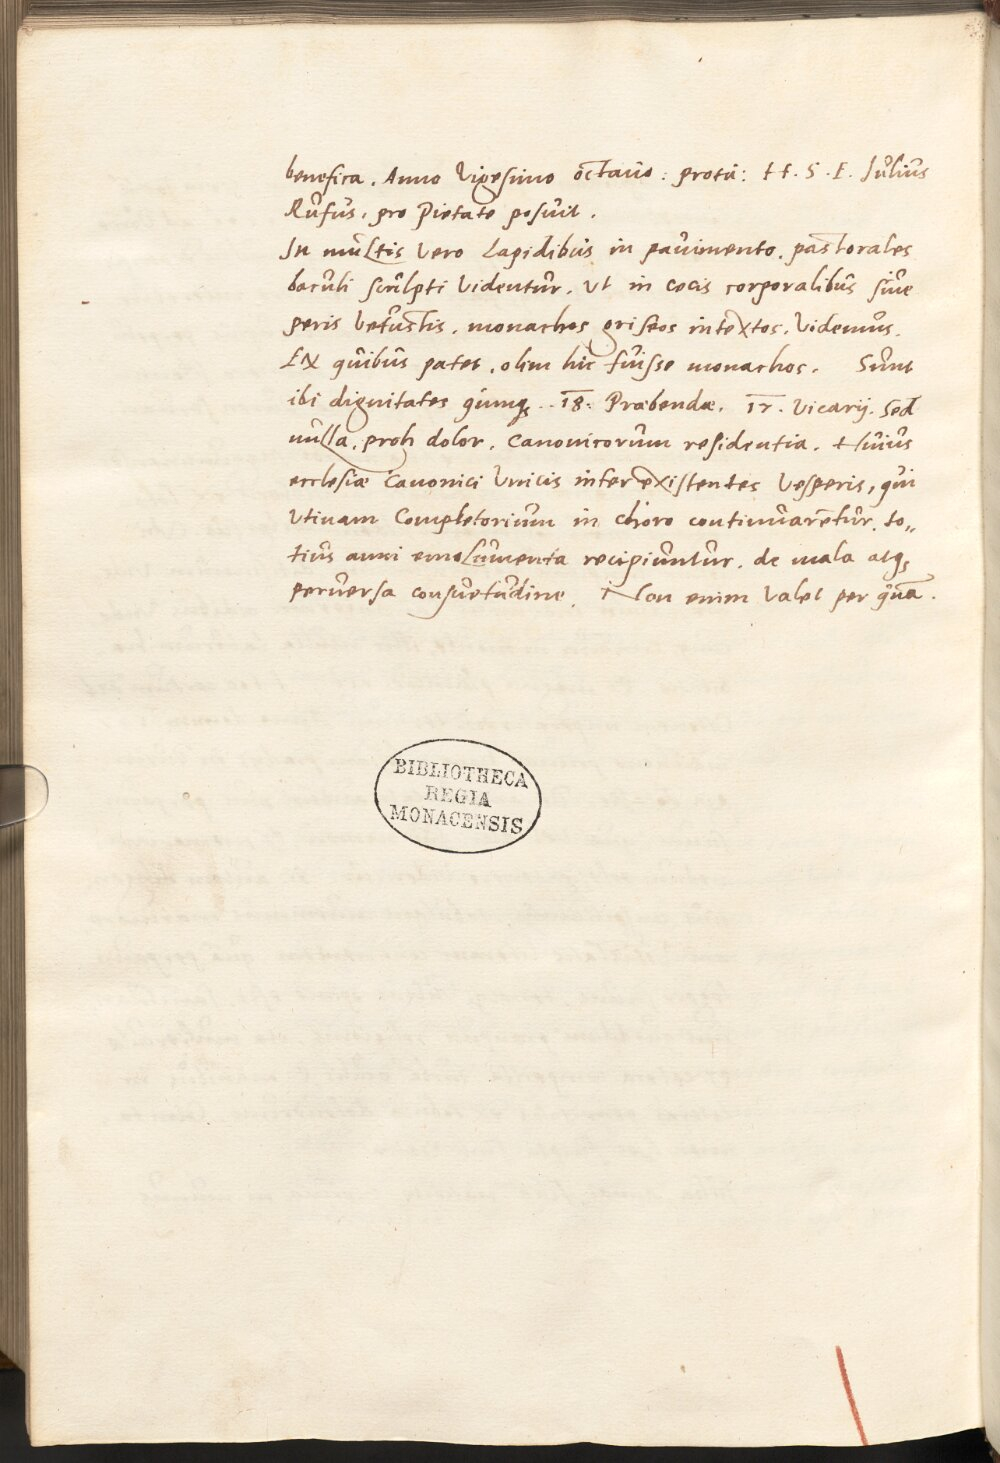 benefica. Anno Vigesimo octauo: protu: tt. S. E. Julius
Rufus, pro Pietate posuit.
In multis vero Lapidibus in pauimento, pastorales
baculi sculpti videntur, Ut in cocis corporalibus siue
peris vetustis, monachos griseos intextos, videmus.
EX quibus patet, olim hic fuisse monachos. Sunt
ibi dignitates quinqꝫ. 18. Præbendæ. 12. Vicarij. Sed
nulla, proh dolor, Canonicorum residentia. Huius
ecclesiæ Canonici Vnicis inter existentes Vesperis, qui
Vtinam Completorium in choro continuarentur, to„
tius anni emolumenta recipiuntur, de mala atqꝫ
peruersa consuetudine. Non enim Valet per quā.
BIBLIOTHECA
REGIA
MONACENSIS